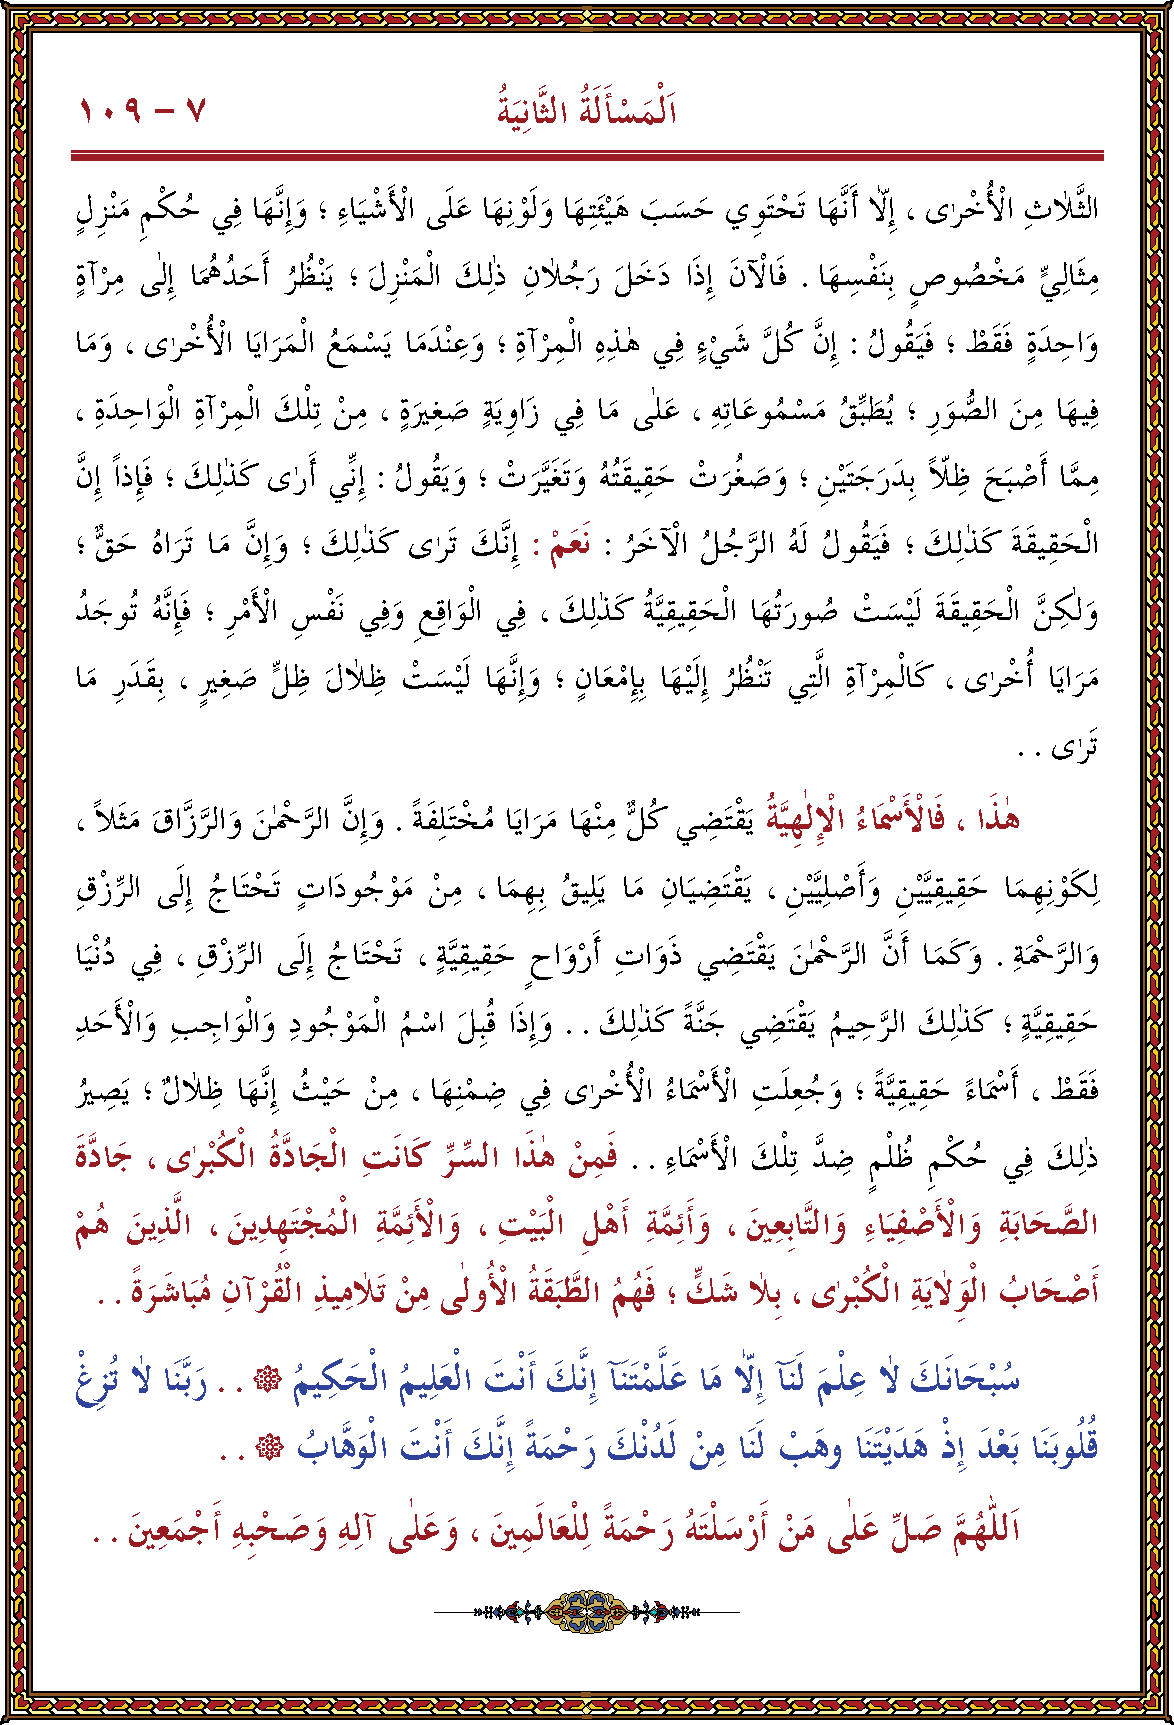 اَلْمَسْأَلَةُ الثَّانِيَةُ
٧ – ١٠٩
الثَّلاٰثِ الْأُخْرٰى ، إِلاّٰ أَنَّهَا تَحْتَوِي حَسَبَ هَيْئَتِهَا وَلَوْنِهَا عَلَى الْأَشْيَاءِ ؛ وَإِنَّهَا فِي حُكْمِ مَنْزِلٍ
مِثَالِيٍّ مَخْصُوصٍ بِنَفْسِهَا . فَالْآنَ إِذَا دَخَلَ رَجُلاٰنِ ذٰلِكَ الْمَنْزِلَ ؛ يَنْظُرُ أَحَدُهُمَا إِلٰى مِرْآةٍ
وَاحِدَةٍ فَقَطْ ؛ فَيَقُولُ : إِنَّ كُلَّ شَيْءٍ فِي هٰذِهِ الْمِرْآةِ ؛ وَعِنْدَمَا يَسْمَعُ الْمَرَايَا الْأُخْرٰى ، وَمَا
فِيهَا مِنَ الصُّوَرِ ؛ يُطَبِّقُ مَسْمُوعَاتِهِ ، عَلٰى مَا فِي زَاوِيَةٍ صَغِيرَةٍ ، مِنْ تِلْكَ الْمِرْآةِ الْوَاحِدَةِ ،
مِمَّا أَصْبَحَ ظِلاًّ بِدَرَجَتَيْنِ ؛ وَصَغُرَتْ حَقِيقَتُهُ وَتَغَيَّرَتْ ؛ وَيَقُولُ : إِنِّي أَرٰى كَذٰلِكَ ؛ فَإِذاً إِنَّ
الْحَقِيقَةَ كَذٰلِكَ ؛ فَيَقُولُ لَهُ الرَّجُلُ الْآخَرُ : نَعَمْ : إِنَّكَ تَرٰى كَذٰلِكَ ؛ وَإِنَّ مَا تَرَاهُ حَقٌّ ؛
وَلٰكِنَّ الْحَقِيقَةَ لَيْسَتْ صُورَتُهَا الْحَقِيقِيَّةُ كَذٰلِكَ ، فِي الْوَاقِعِ وَفِي نَفْسِ الْأَمْرِ ؛ فَإِنَّهُ تُوجَدُ
مَرَايَا أُخْرٰى ، كَالْمِرْآةِ الَّتِي تَنْظُرُ إِلَيْهَا بِإِمْعَانٍ ؛ وَإِنَّهَا لَيْسَتْ ظِلاٰلَ ظِلٍّ صَغِيرٍ ، بِقَدَرِ مَا
تَرٰى . .
هٰذَا ، فَالْأَسْمَاءُ الْإِلٰهِيَّةُ يَقْتَضِي كُلٌّ مِنْهَا مَرَايَا مُخْتَلِفَةً . وَإِنَّ الرَّحْمٰنَ وَالرَّزَّاقَ مَثَلاً ،
لِكَوْنِهِمَا حَقِيقِيَّيْنِ وَأَصْلِيَّيْنِ ، يَقْتَضِيَانِ مَا يَلِيقُ بِهِمَا ، مِنْ مَوْجُودَاتٍ تَحْتَاجُ إِلَى الرِّزْقِ
وَالرَّحْمَةِ . وَكَمَا أَنَّ الرَّحْمٰنَ يَقْتَضِي ذَوَاتِ أَرْوَاحٍ حَقِيقِيَّةٍ ، تَحْتَاجُ إِلَى الرِّزْقِ ، فِي دُنْيَا
حَقِيقِيَّةٍ ؛ كَذٰلِكَ الرَّحِيمُ يَقْتَضِي جَنَّةً كَذٰلِكَ . . وَإِذَا قُبِلَ اسْمُ الْمَوْجُودِ وَالْوَاجِبِ وَالْأَحَدِ
فَقَطْ ، أَسْمَاءً حَقِيقِيَّةً ؛ وَجُعِلَتِ الْأَسْمَاءُ الْأُخْرٰى فِي ضِمْنِهَا ، مِنْ حَيْثُ إِنَّهَا ظِلاٰلٌ ؛ يَصِيرُ
ذٰلِكَ فِي حُكْمِ ظُلْمٍ ضِدَّ تِلْكَ الْأَسْمَاءِ . . فَمِنْ هٰذَا السِّرِّ كَانَتِ الْجَادَّةُ الْكُبْرٰى ، جَادَّةَ
الصَّحَابَةِ وَالْأَصْفِيَاءِ وَالتَّابِعِينَ ، وَأَئِمَّةِ أَهْلِ الْبَيْتِ ، وَالْأَئِمَّةِ الْمُجْتَهِدِينَ ، الَّذِينَ هُمْ
أَصْحَابُ الْوَلاٰيَةِ الْكُبْرٰى ، بِلاٰ شَكٍّ ؛ فَهُمُ الطَّبَقَةُ الْأُولٰى مِنْ تَلاٰمِيذِ الْقُرْآنِ مُبَاشَرَةً . .
سُبْحَانَكَ لاٰ عِلْمَ لَنَآ إِلاّٰ مَا عَلَّمْتَنَآ إِنَّكَ أَنْتَ الْعَلِيمُ الْحَكِيمُ ۞ . . رَبَّنَا لاٰ تُزِغْ
قُلُوبَنَا بَعْدَ إِذْ هَدَيْتَنَا وَهَبْ لَنَا مِنْ لَدُنْكَ رَحْمَةً إِنَّكَ أَنْتَ الْوَهَّابُ ۞ . .
اَللّٰهُمَّ صَلِّ عَلٰى مَنْ أَرْسَلْتَهُ رَحْمَةً لِلْعَالَمِينَ ، وَعَلٰى آلِهِ وَصَحْبِهِ أَجْمَعِينَ . .